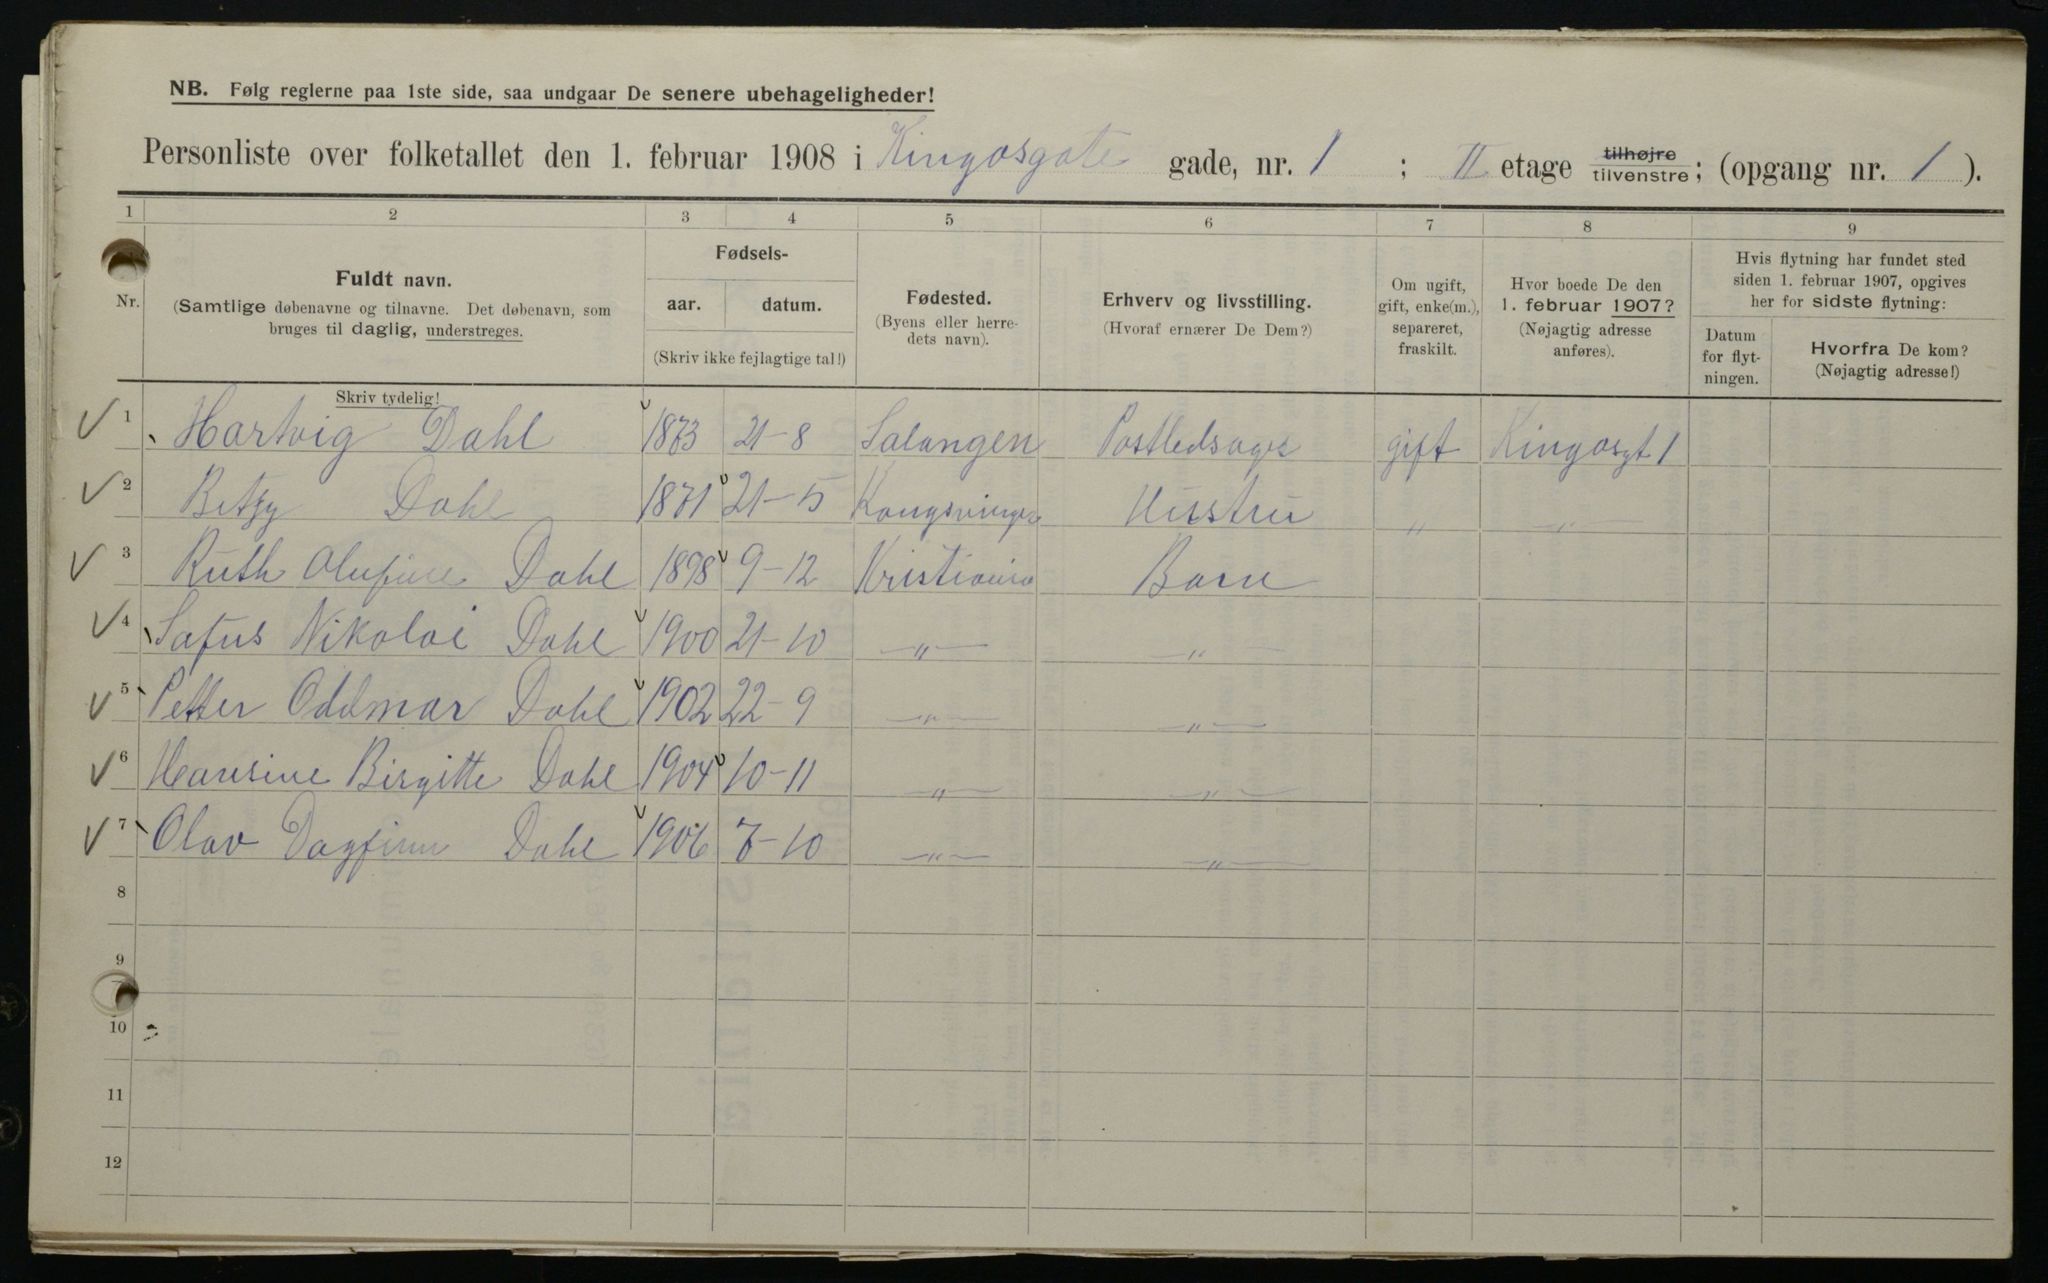 NB. Følg reglerne paa 1ste side, saa undgaar De senere ubehageligheder!
Personliste over folketallet den 1. februar 1908 i Kingosgate gade, nr. 1 ; II etage tilhøjre tilvenstre; (opgang nr. 1 ).
1 2 3 4 5 6 7 8 9
Nr. Fuldt navn. (Samtlige døbenavne og tilnavne. Det døbenavn, som bruges til daglig, understreges. Skriv tydelig!
Fødsels- aar. datum. (Skriv ikke fejlagtige tal!)
Fødested. (Byens eller herredets navn).
Erhverv og livsstilling. (Hvoraf ernærer De Dem?)
Om ugift, gift, enke(m.), separeret, fraskilt.
Hvor boede De den 1. februar 1907? (Nøjagtig adresse anføres).
Hvis flytning har fundet sted siden 1. februar 1907, opgives her for sidste flytning:
Datum for flytningen. Hvorfra De kom? (Nøjagtig adresse!)
1 Hartvig Dahl 1873 21-8 Salangen Postledsager gift Kingosgt 1
2 Betzy Dahl 1871 21-5 Kongsvinger Hustru " "
3 Ruth Olufine Dahl 1898 9-12 Kristiania Barn
4 Sofus Nikolai Dahl 1900 21-10 " "
5 Petter Oddmar Dahl 1902 22-9 " "
6 Hansine Birgitte Dahl 1904 10-11 " "
7 Olav Dagfinn Dahl 1906 7-10 " "
8
9
10
11
12